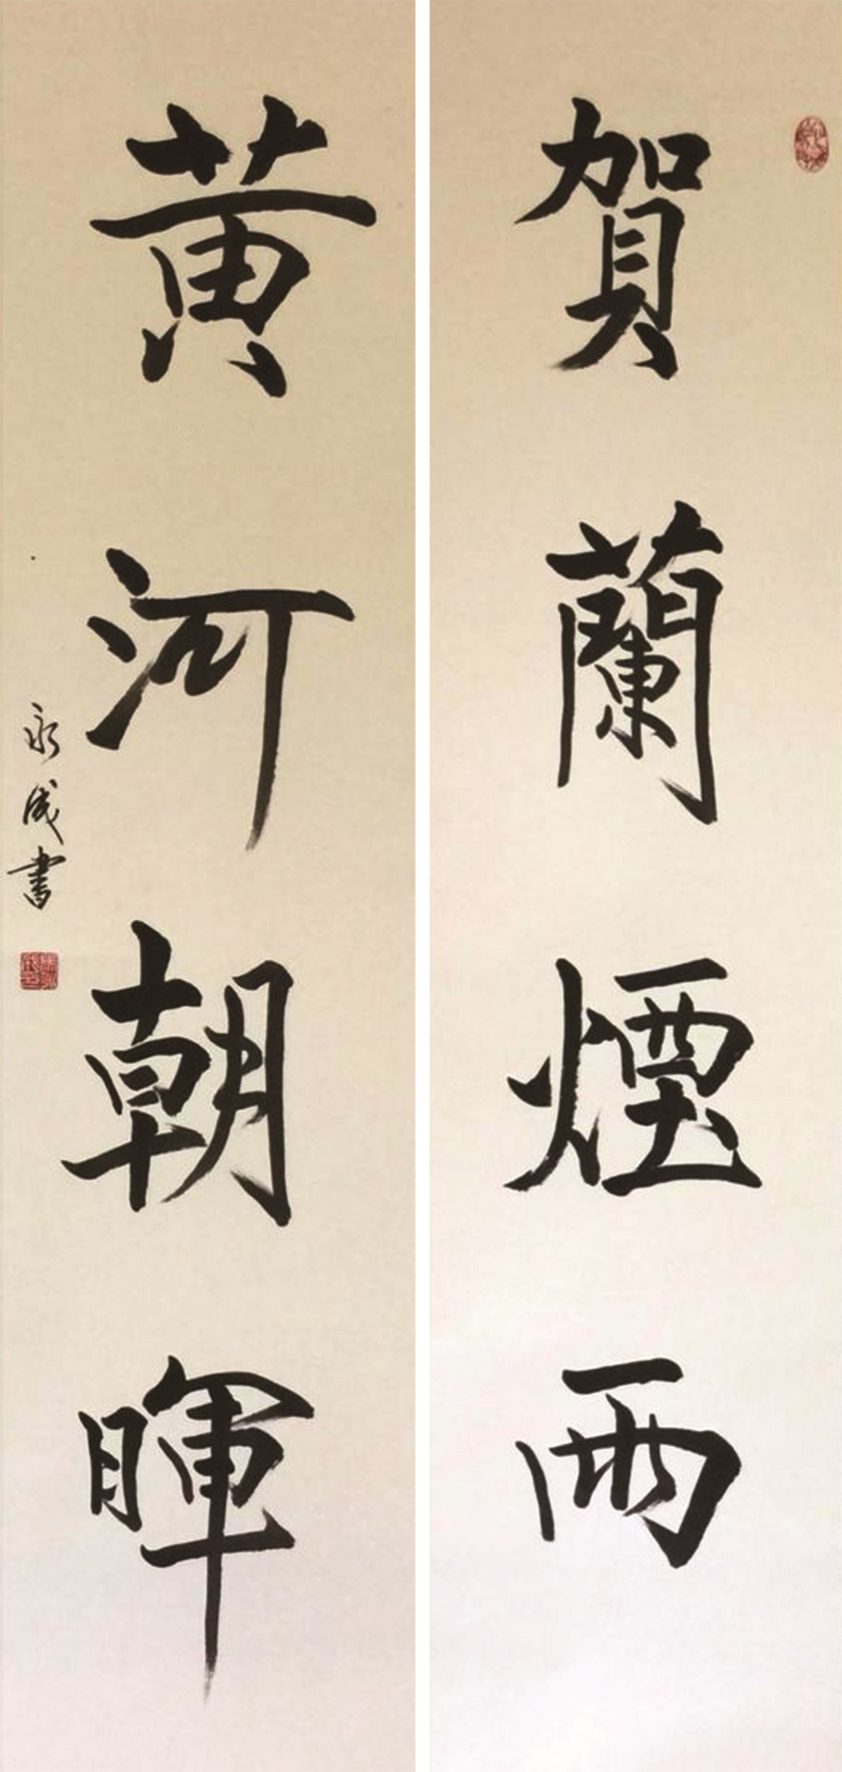 賀蘭煙雨
黄河朝暉
永成書